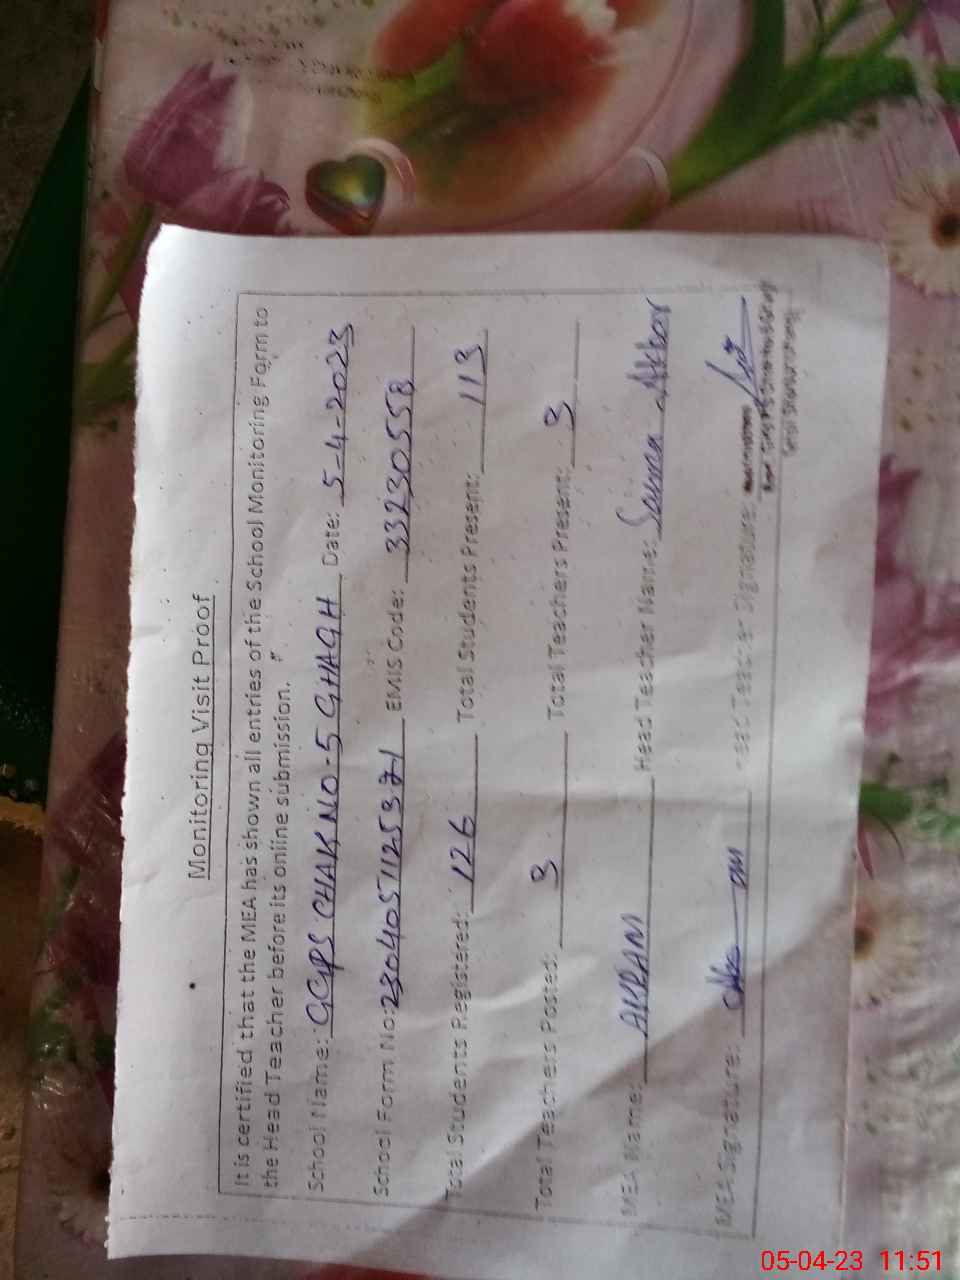 Monitoring Visit Proof
It is certified that the MEA has shown all entries of the School Monitoring Form to
the Head Teacher before its online submission.
School Name: GGPS CHAK NO-5 GHAGH Date: 5-4-2023
School Form No: 230405112537 EMIS Code: 33230558
Total Students Registered: 126 Total Students Present: 113
Total Teachers Posted: 3 Total Teachers Present: 3
MEA Name: AKRAM Head Teacher Name: Saima Akbar
MEA Signature: Head Teacher Signature:
05-04-23 11:51